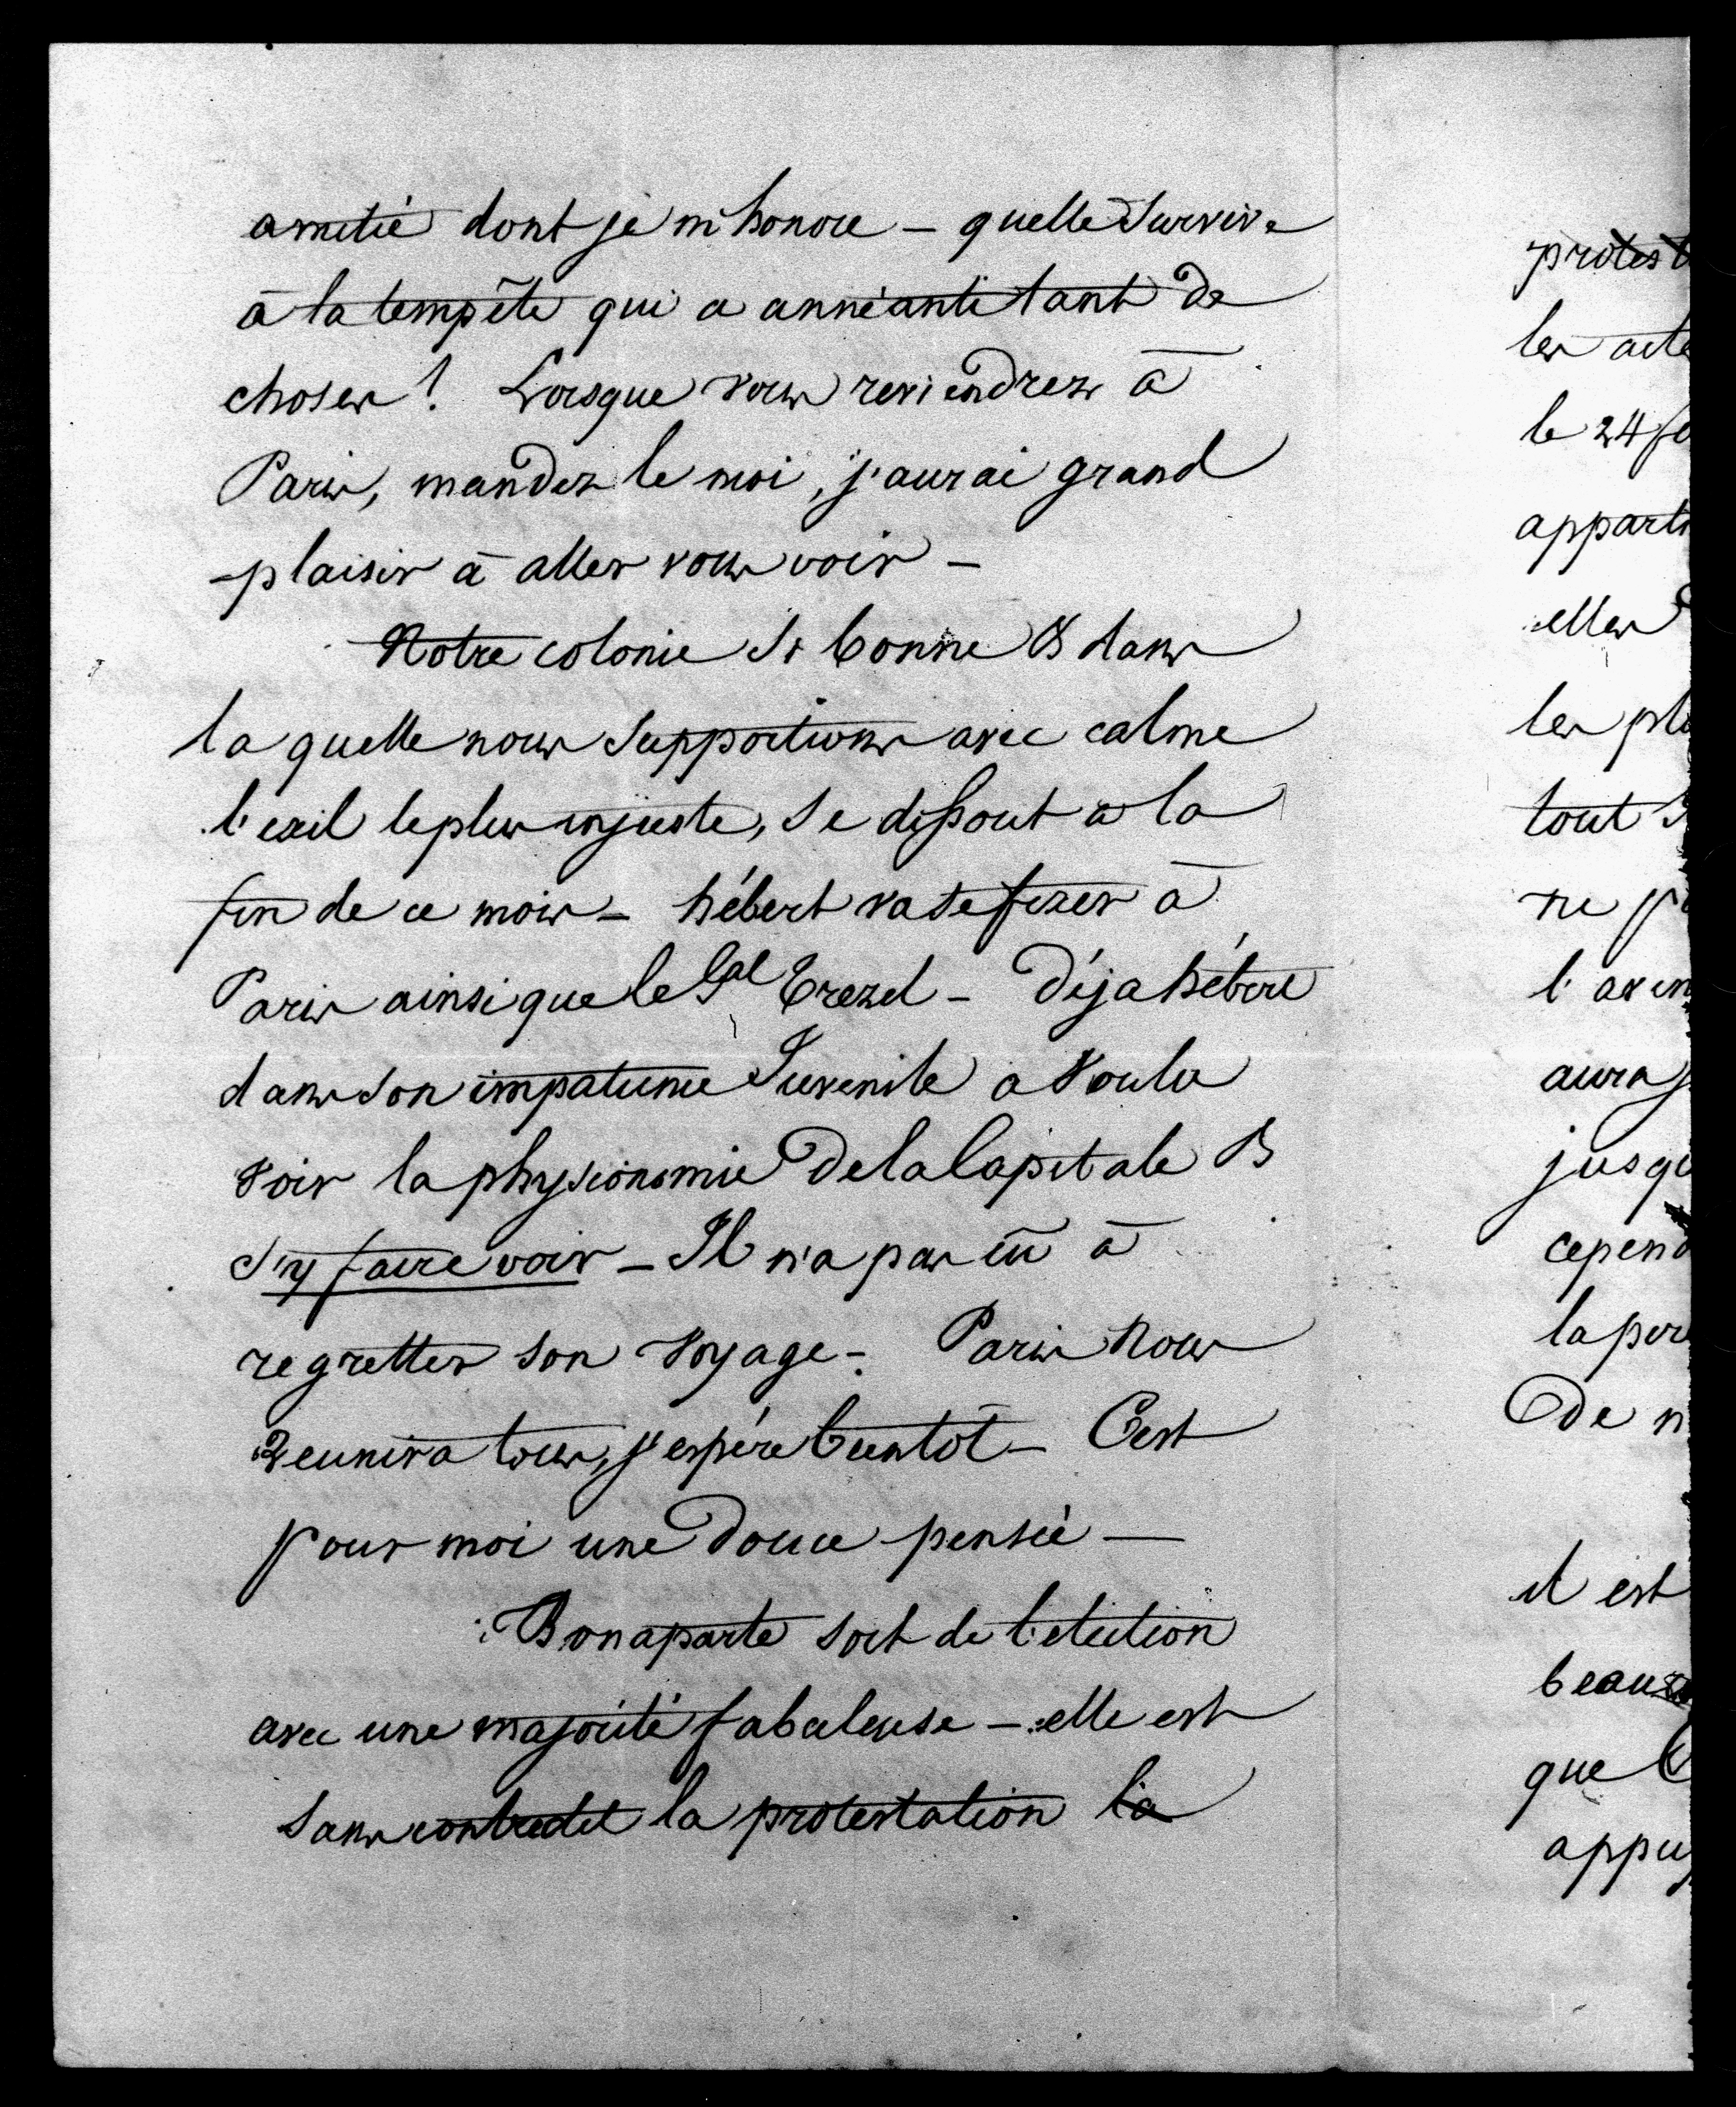 amitié dont je m'honore – quelle Survive
à la tempête qui a annéanti tant de
choses! Lorsque vous reviendrez à
Paris, mandez le moi, j'aurai grand
plaisir à aller vous voir –
Notre colonie Si bonne & dans
la quelle nous Supportions avec calme
l'exil le plus injuste, Se dissout à la
fin de ce mois – hébert va Se fixer à
Paris ainsi que le Gal Trezel – Déja hébert
dans Son impatience Juvenile a voulu
voir la physionomie de la Capitale &
S'y faire voir – Il n'a pas eu à
regretter son voyage – Paris nous
Reunira tous, j'espére bientôt – C'est
pour moi une douce pensée –
Bonaparte sort de l'election
avec une majorité fabuleuse – elle est
Sans contredit la protestation la
protest
les acte
le 24 fe
apparti
elles
les plu
tout S
ne p
l'aven
aura j
jusqu
cepend
la per
de n
il est
beau
que
appuy